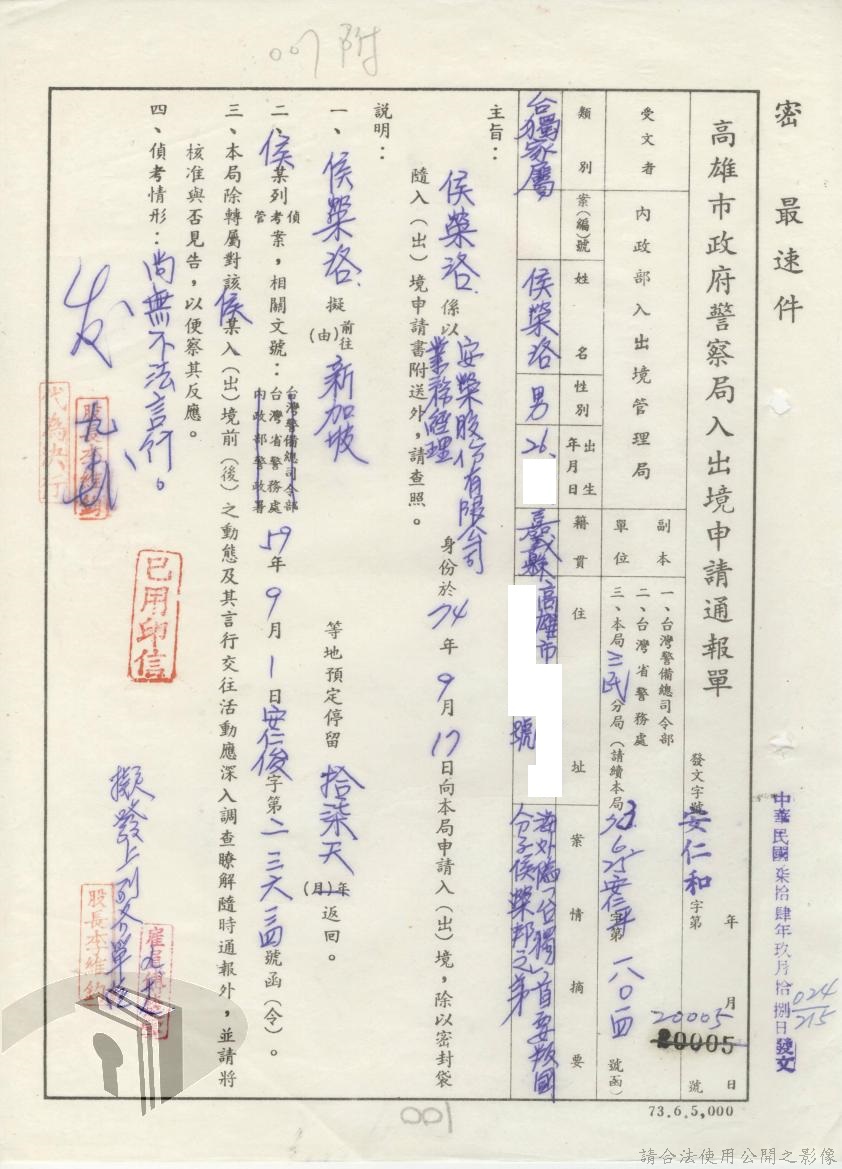 007附
密 最速件
中華民國柒拾肆年玖月拾捌日發文
024
215
高雄市政府警察局入出境申請通報單
發文字號 安仁和 字第 20005 號
20005
年 月 日
受文者 內政部入出境管理局
副本單位
一、台灣警備總司令部
二、台灣省警務處
三、本局三民分局(請續本局73.6.25安仁平字第一八○四號函)
類別 案(編)號 姓名 性別 出生年月日 籍貫 住址 案情摘要
台獨家屬 侯榮洛 男 26. 嘉義縣 高雄市 號
海外偽「台獨」首要叛國
分子侯榮邦之弟
主旨:
侯榮洛係以安榮股份有限公司業務經理身份於74年9月17日向本局申請入(出)境,除以密封袋
隨入(出)境申請書附送外,請查照。
說明:
一、侯榮洛擬前往(由)新加坡 等地預定停留拾柒天年(月)返回。
二、侯某列偵考管案,相關文號:台灣警備總司令部 台灣省警務處 內政部警政署 59年9月1日安仁俊字第二三六四號函(令)。
三、本局除轉屬對該侯某入(出)境前(後)之動態及其言行交往活動應深入調查瞭解隨時通報外,並請將
核准與否見告,以便察其反應。
四、偵考情形:尚無不法言行。
發
代為決行
股長李維鈞
已用印信
擬發上列各單位
股長李維鈞
雇員
001
73.6.5,000
請合法使用公開之影像